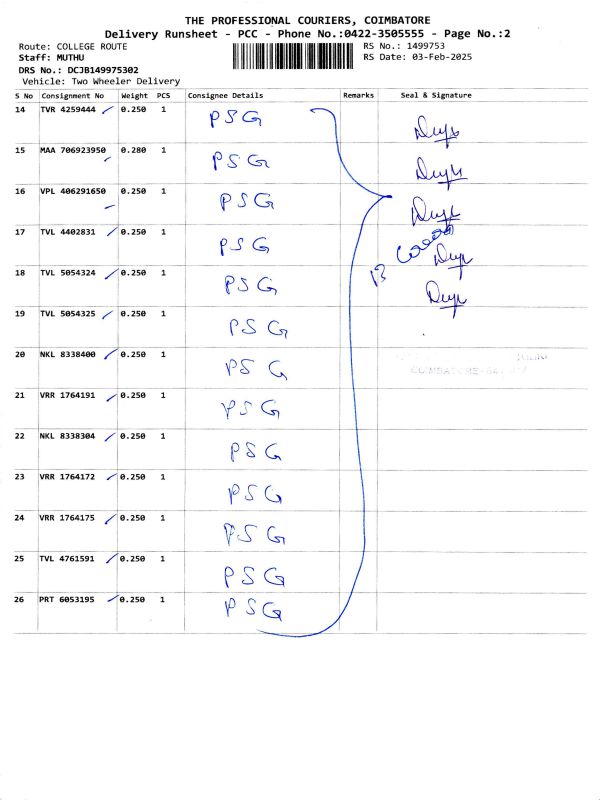 THE PROFESSIONAL COURIERS, COIMBATORE
Delivery Runsheet - PCC - Phone No.:0422-3505555 - Page No.:2
Route: COLLEGE ROUTE RS No.: 1499753
Staff: MUTHU RS Date: 03-Feb-2025
DRS No.: DCJB149975302
Vehicle: Two Wheeler Delivery
S No Consignment No Weight PCS Consignee Details Remarks Seal & Signature
14 TVR 4259444 0.250 1 PSG
15 MAA 706923950 0.280 1 PSG
16 VPL 406291650 0.250 1 PSG
17 TVL 4402831 0.250 1 PSG
18 TVL 5054324 0.250 1 PSG 13
19 TVL 5054325 0.250 1 PSG
20 NKL 8338400 0.250 1 PSG
COIMBATORE-641
21 VRR 1764191 0.250 1 PSG
22 NKL 8338304 0.250 1 PSG
23 VRR 1764172 0.250 1 PSG
24 VRR 1764175 0.250 1 PSG
25 TVL 4761591 0.250 1 PSG
26 PRT 6053195 0.250 1 PSG